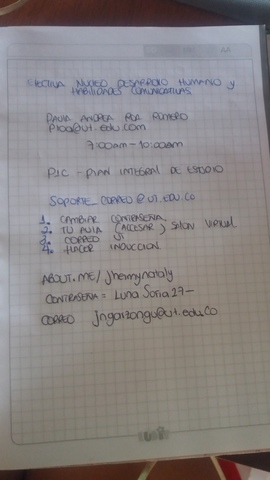 ELECTIVA NUCLEO DESARROLLO HUMANO y
HABILIDADES COMUNICATIVAS.
PAULA ANDREA ROA RUTERO
Proa@ut.edu.com
7:00am - 10:00am
PIC - PLAN INTEGRAL DE ESTUDIO
SOPORTE_CORREO@UT.EDU.CO
1. CAMBIAR CONTRASEÑA
2. TU AULA (ACCESAR) SALON VIRTUAL
3. CORREO UT
4. HACER INDUCCION.
ABOUT.ME/Jhermynataly
CONTRASEÑA = Luna Sofia 27-
CORREO jngarzongu@ut.edu.co